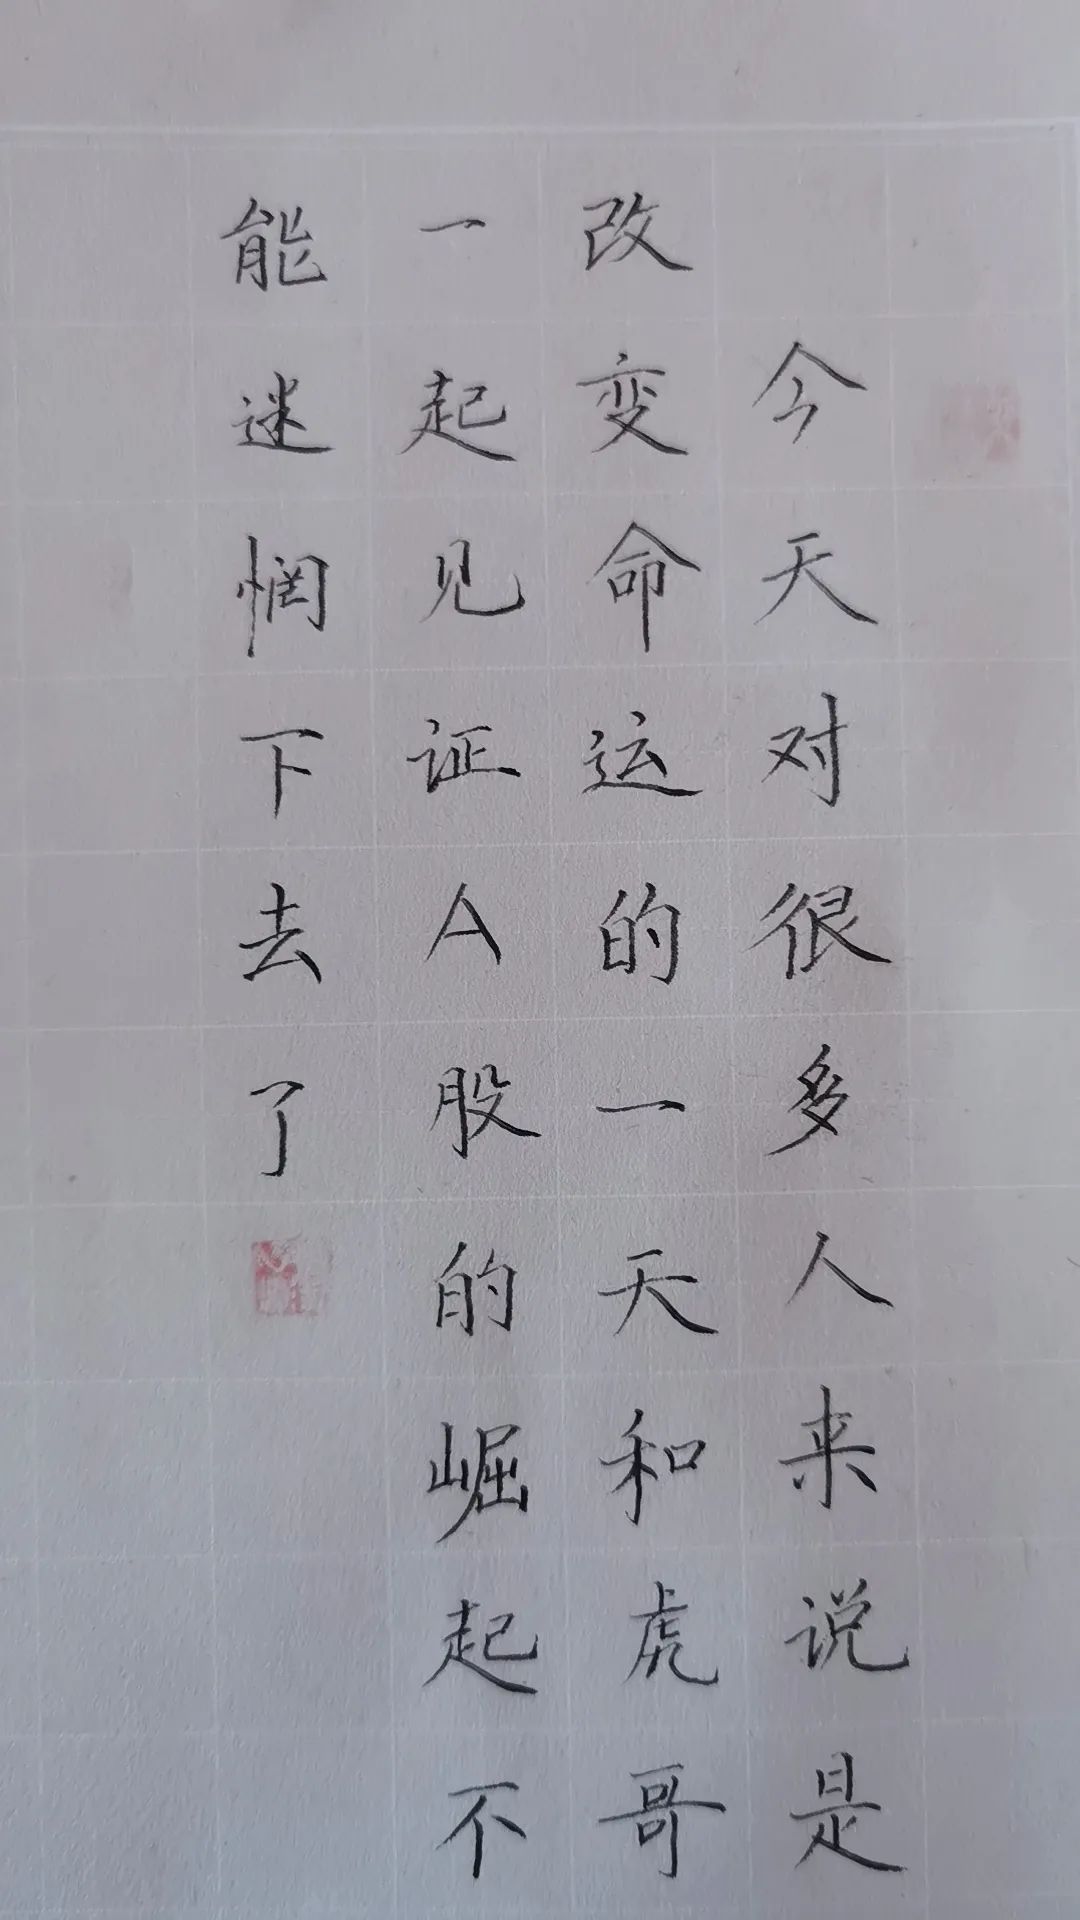 今天对很多人来说是
改变命运的一天和虎哥
一起见证A股的崛起不
能迷惘下去了